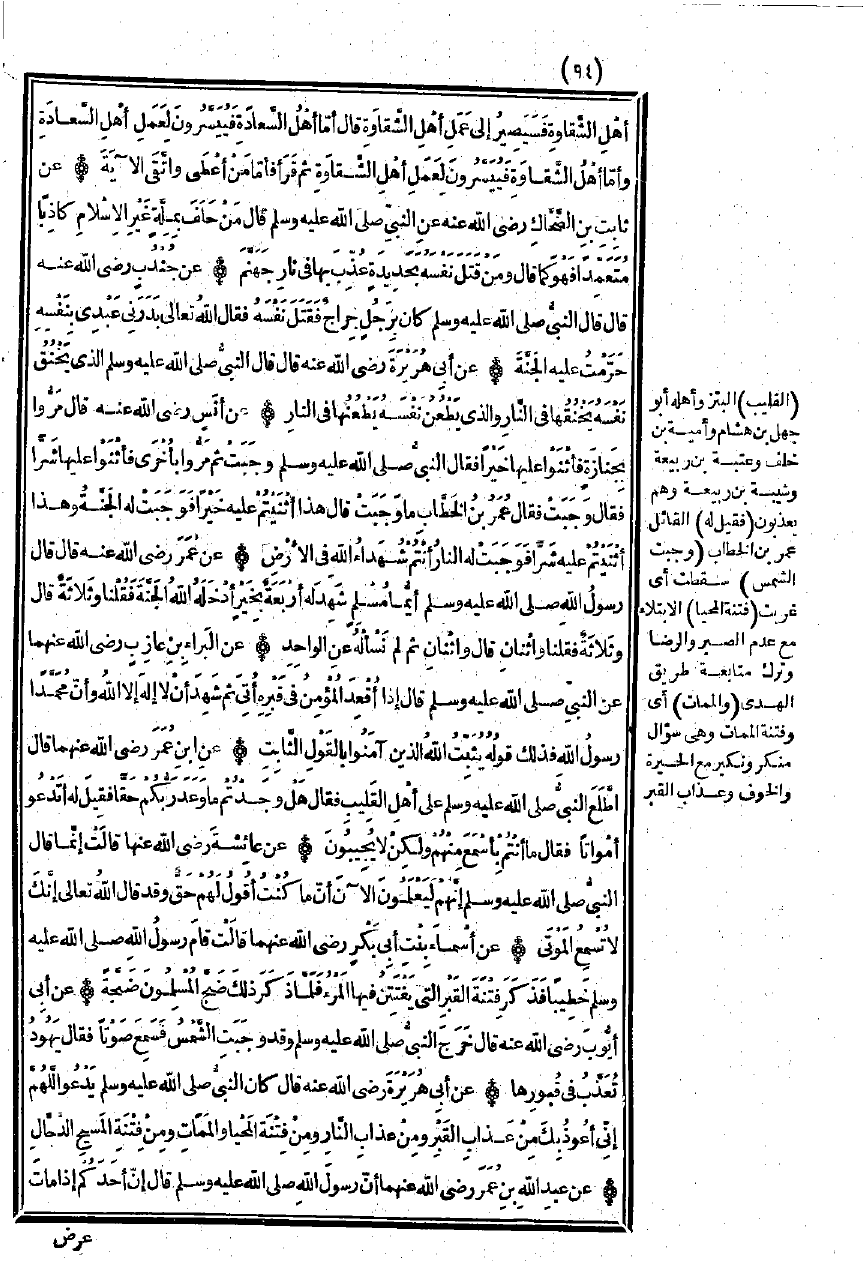 (٩٤)
أَهْلِ الشَّقاوةِ فَسَيَصِيرُ إلى عَمَلِ أَهْلِ الشَّقاوَةِ قال أمّا أهْلُ السَّعادَةِ فَيُيَسَّرُونَ لِعَمَلِ أهْلِ السَّعادَةِ
وأمّا أهْلُ الشَّقاوَةِ فَيُيَسَّرُونَ لِعَمَلِ أهلِ الشَّقاوَةِ ثم قَرَأَ فأمّا مَنْ أَعْطَى واتَّقَى الآيَةَ ۞ عن
ثابتِ بنِ الضَّحّاكِ رضى الله عنه عنِ النبيّ صلى الله عليه وسلم قال مَنْ حَلَفَ بِمِلَّةٍ غَيْرِ الإِسْلامِ كاذِبًا
مُتَعَمِّدًا فهو كما قال ومن قَتَلَ نَفْسَه بحَدِيدَةٍ عُذِّبَ بها فى نارِ جهنَّم ۞ عن جُنْدُبٍ رضى الله عنه
قال قال النبىُّ صلى الله عليه وسلم كان برَجُلٍ جِراحٌ فَقَتَلَ نَفْسَهُ فقال اللهُ تعالى بَدَرَنِى عَبْدِى بِنَفْسِهِ
حَرَّمْتُ عليه الجَنَّةَ ۞ عن أبى هُرَيْرَةَ رضى الله عنه قال قال النبىُّ صلى الله عليه وسلم الذى يَخْنُقُ
نَفْسَهُ يَخْنُقُها فى النَّارِ والذى يَطْعُنُ نَفْسَهُ يَطْعُنُها فى النارِ ۞ عن أنَسٍ رضى الله عنه قال مَرُّوا
بِجَنازَةٍ فأثْنَوْا عليها خَيْرًا فقال النبىُّ صلى الله عليه وسلم وجَبَتْ ثم مَرُّوا بأُخْرَى فأثْنَوْا عليها شَرًّا
فقال وجَبَتْ فقال عُمَرُ بنُ الخَطّابِ ما وَجَبَتْ قال هذا أثْنَيْتُمْ عليه خَيْرًا فَوَجَبَتْ له الجَنَّةُ وهذا
أثْنَيْتُمْ عليه شَرًّا فوَجَبَتْ له النارُ أنْتُمْ شُهَداءُ اللهِ فى الأَرْضِ ۞ عن عُمَرَ رضى الله عنه قال قال
رسولُ اللهِ صلى الله عليه وسلم أيُّما مُسْلِمٍ شَهِدَ له أرْبَعَةٌ بخَيْرٍ أدْخَلَهُ اللهُ الجَنَّةَ فقلنا وثَلاثَةٌ قال
وثَلاثَةٌ فقلنا واثنانِ قال واثْنانِ ثم لم نَسْألْهُ عنِ الواحِدِ ۞ عن البَراءِ بنِ عازِبٍ رضى الله عنهما
عن النبىّ صلى الله عليه وسلم قال إذا أُقْعِدَ المُؤْمِنُ فى قَبْرِهِ أُتِىَ ثم شَهِدَ أنْ لا إلهَ إلا اللهُ وأنّ محمدًا
رسولُ اللهِ فذلك قوله يُثَبِّتُ اللهُ الذين آمَنُوا بالقَوْلِ الثَّابِتِ ۞ عن ابن عمرَ رضى الله عنهما قال
اطَّلَعَ النبىُّ صلى الله عليه وسلم على أهْلِ القَلِيبِ فقال هَلْ وجَدْتُم ما وعَدَ رَبُّكم حَقًّا فقيلَ له أتَدْعُو
أمْواتًا فقال ما أنتُمْ بأسْمَعَ مِنْهُمْ ولكِنْ لا يُجِيبُونَ ۞ عن عائشةَ رضى الله عنها قالَتْ إنَّما قال
النبىُّ صلى الله عليه وسلم إنَّهم لَيَعْلَمُونَ الآنَ أنّ ما كُنْتُ أقولُ لَهُم حَقٌّ وقد قال اللهُ تعالى إنَّكَ
لا تُسْمِعُ المَوْتَى ۞ عن أسْماءَ بِنْتِ أبى بَكْرٍ رضى الله عنهما قالَتْ قامَ رسولُ اللهِ صلى الله عليه
وسلم خَطِيبًا فَذَكَرَ فِتْنَةَ القَبْرِ التى يَفْتَتِنُ فيها المَرْءُ فَلَمَّا ذَكَرَ ذلك ضَجَّ المُسْلِمُونَ ضَجَّةً ۞ عن أبى
أيُّوبَ رضى الله عنه قال خَرَجَ النبىُّ صلى الله عليه وسلم وقد وجَبَتِ الشَّمْسُ فَسَمِعَ صَوْتًا فقال يَهُودُ
تُعَذَّبُ فى قُبُورِها ۞ عن أبى هُرَيْرَةَ رضى الله عنه قال كان النبىُّ صلى الله عليه وسلم يَدْعُو اللَّهُمَّ
إنّى أعُوذُ بِكَ مِنْ عَذابِ القَبْرِ ومِنْ عذابِ النَّارِ ومِنْ فِتْنَةِ المَحْيا والمَماتِ ومِنْ فِتْنَةِ المَسيحِ الدَّجّالِ
۞ عن عبدِ اللهِ بنِ عُمَرَ رضى الله عنهما أنّ رسولَ اللهِ صلى الله عليه وسلم قال إنّ أحَدَكُم إذا ماتَ
عرض
(القليب) البئر وأهله أبو
جهل بن هشام وأمية بن
خلف وعتبة بن ربيعة
وشيبة بن ربيعة وهم
يعذبون (فقيل له) القائل
عمر بن الخطاب (وجبت
الشمس) سقطت أى
غربت (فتنة المحيا) الابتلاء
مع عدم الصبر والرضا
وترك متابعة طريق
الهدى (والممات) أى
وفتنة الممات وهى سؤال
منكر ونكير مع الحيرة
والخوف وعذاب القبر